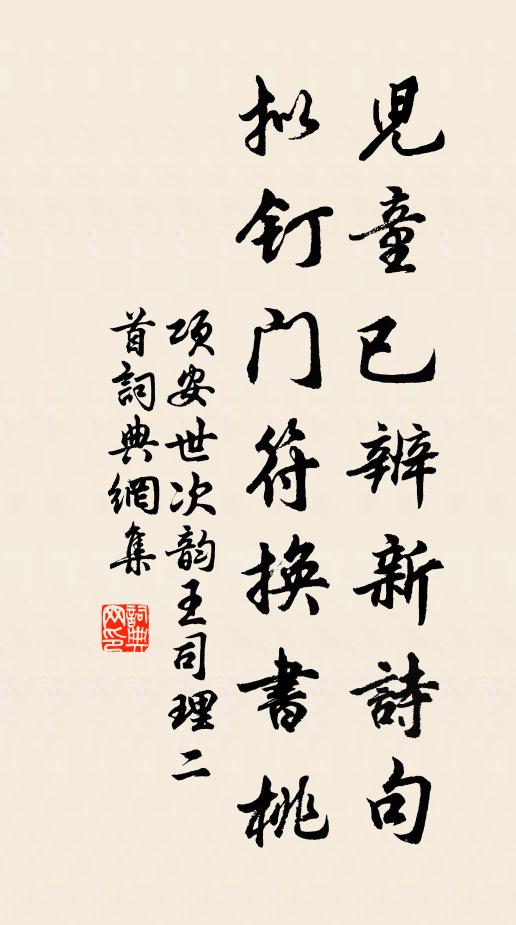 兒童已辨新詩句
擬釘門符換書桃
項安世次韵王司理二
首詞典網集
詞典
网印